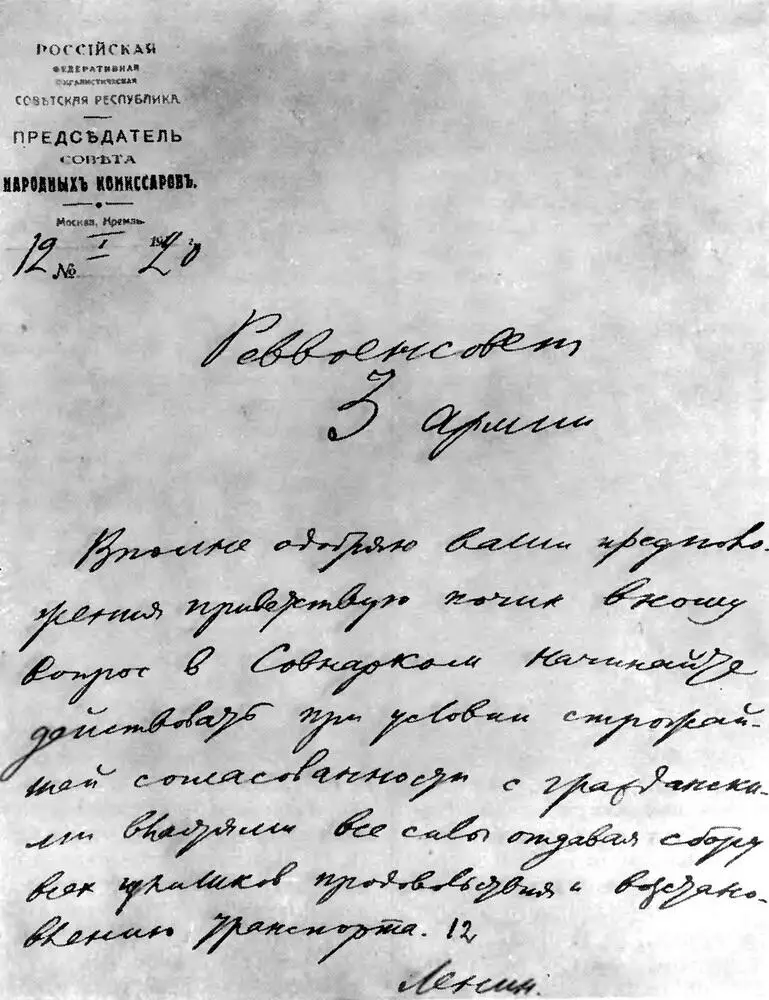 РОССІЙСКАЯ
ФЕДЕРАТИВНАЯ
СОЦІАЛИСТИЧЕСКАЯ
СОВѢТСКАЯ РЕСПУБЛИКА
ПРЕДСѢДАТЕЛЬ
СОВѢТА
НАРОДНЫХЪ КОМИССАРОВЪ.
Москва, Кремль.
12 I 1920 г.
№
Реввоенсовет
3 армии
Вполне одобряю ваши предполо-
жения приветствую почин вношу
вопрос в Совнарком Начинайте
действовать при условии строжай-
шей согласованности с граждански-
ми властями все силы отдавая сбору
всех излишков продовольствия и восстано-
влению транспорта. 12
Ленин.